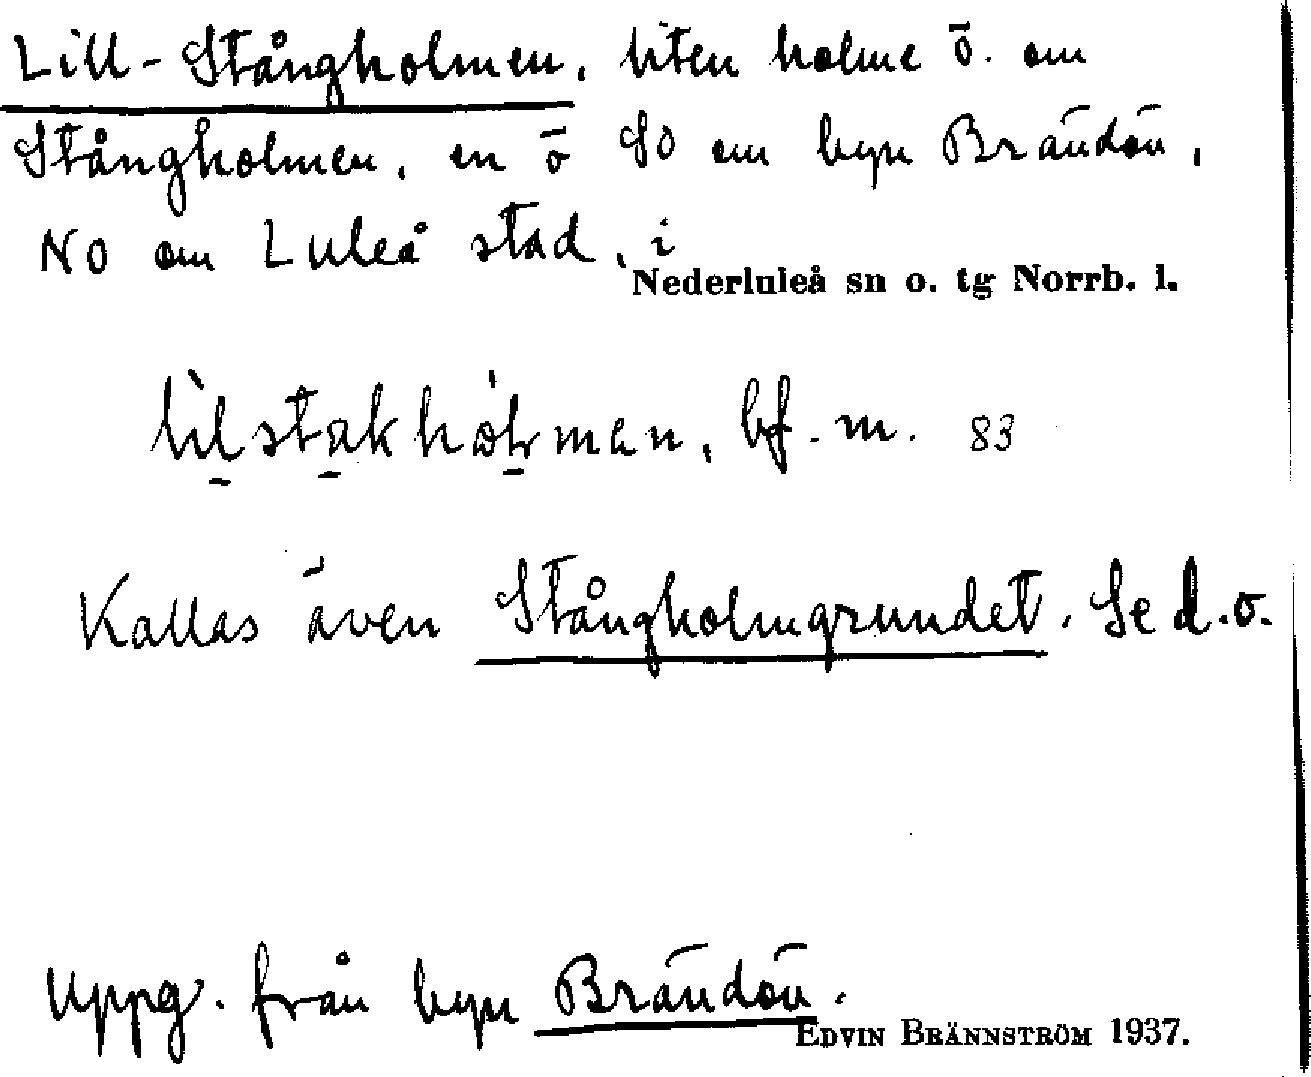 Lill-Stångholmen, liten holme ö. om
Stångholmen, en ö SO om byn Brändön,
NO om Luleå stad, i
Nederluleå sn o. tg Norrb. l.
bf. m. 83
Kallas även Stångholmgrundet. Se d.o.
Uppg. från byn Brändön.
EDVIN BRÄNNSTRÖM 1937.